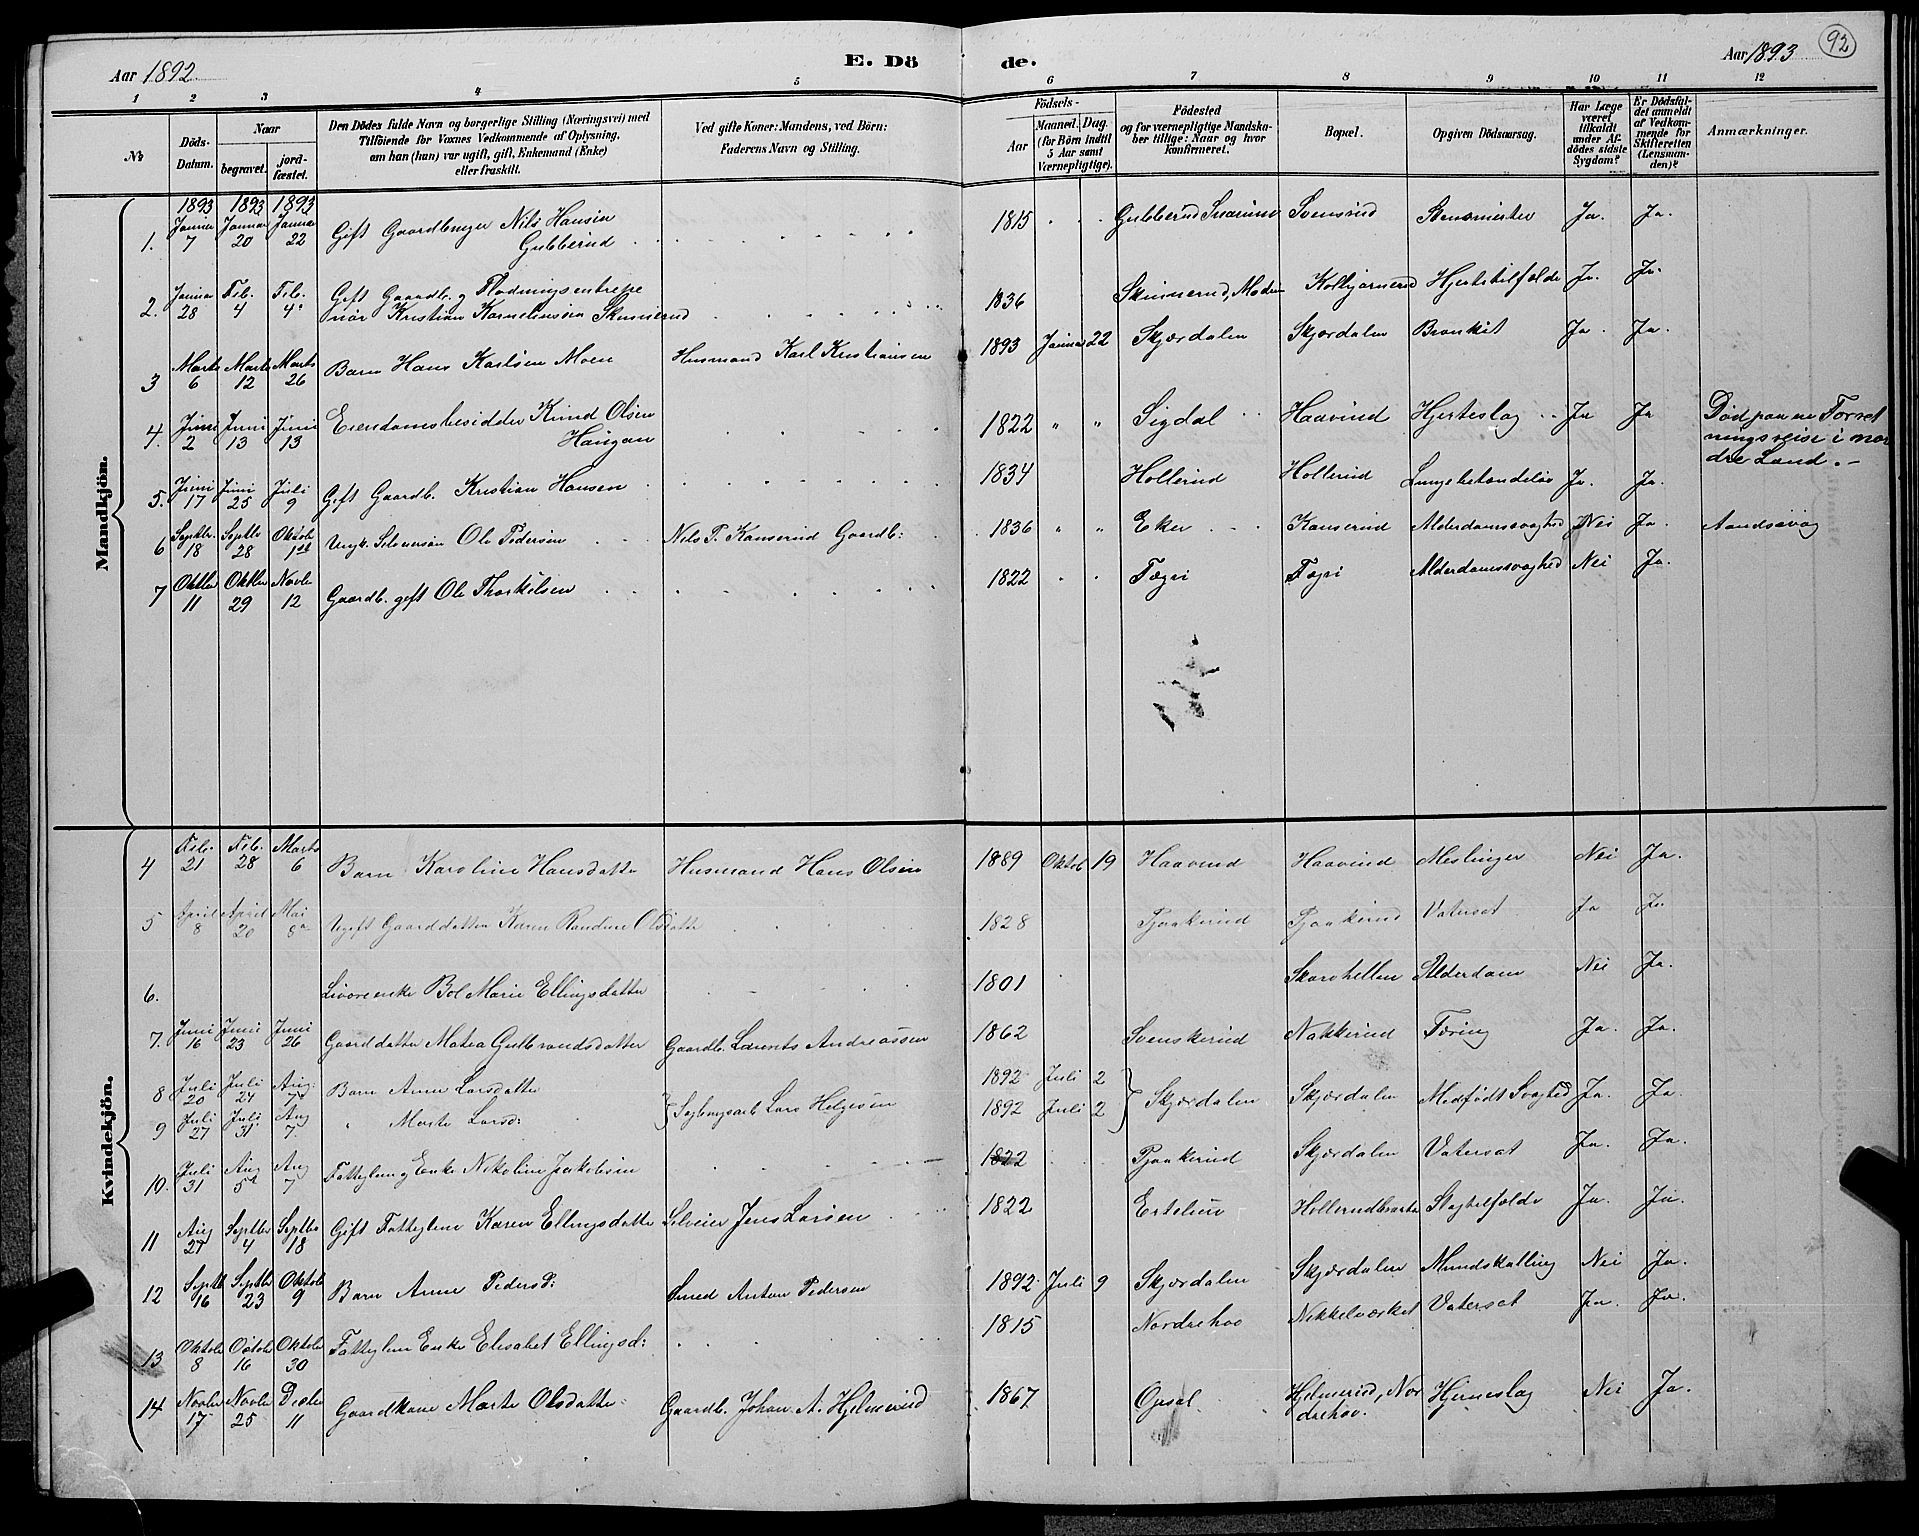 Aar 1892.
E. Dö
de.
Aar 1893
92
1 2 3 4 5 6 7 8 9 10 11 12
№
Döds-Datum.
Naar
begravet.
jord-fæstet.
Den Dödes fulde Navn og borgerlige Stilling (Næringsvei) med
Tilföiende for Voxnes Vedkommende af Oplysning,
om han (hun) var ugift, gift, Enkemand (Enke)
eller fraskilt.
Ved gifte Koner: Mandens, ved Börn:
Faderens Navn og Stilling.
Födsels-
Aar
Maaned. Dag.
(for Börn indtil
5 Aar samt
Værnepligtige).
Födested
og for værnepligtige Mandska-
ber tillige: Naar og hvor
konfirmeret.
Bopæl.
Opgiven Dödsaarsag.
Har Læge
været
tilkaldt
under Af-
dödes sidste
Sygdom?
Er Dödsfal-
det anmeldt
af Vedkom-
mende for
Skifteretten
(Lensman-
den)?
Anmærkninger.
Mandkjön.
1893 1893 1893
1. Januar 7 Januar 20 Januar 22 Gift Gaardbruger Nils Hansen Gubberud 1815 Gubberud Svensrud Ja. Ja.
2. Januar 28 Feb. 4 Feb. 4. Gift Gaardb. og Flødningsentrepe
nør Kristian Kornelinssen Skinnerud 1836 Skinnerud, Modum Kolbjørnerud Hjertetilfælde Ja. Ja.
3 Marts 6 Marts 12 Marts 26 Barn Hans Karlsen Moen Husmand Karl Kristiansen 1893 Januar 22 Skjærdalen Skjærdalen Bronkit Ja. Ja.
4. Juni 2 Juni 13 Juni 13 Eiendomsbesidder Knud Olsen Haugan 1822 " " Sigdal Haavind Hjerteslag Ja Ja Død paa en Forret
ningsreise i nor
dre Land. –
5. Juni 17 Juni 25 Juli 9 Gift Gaardb. Kristian Hansen 1834 Hollerud Hollerud Lungebetændelse Ja. Ja.
6 Septbr. 18 Septbr 28 Oktob 1st Ole Pedersen Nils P. Kanserud Gaardb: 1836 " " Eker Kanserud Alderdomssvaghed Nei Ja. Aandssvag
7 Oktbr 11 Oktbr 29 Novbr 12 Gaardb. gift Ole Thorkelsen 1822 Fægri Fægri Alderdomssvaghed Nei Ja.
Kvindekjön.
4 Feb. 21 Feb. 28 Marts 6 Barn Karoline Hansdatter Husmand Hans Olsen 1889 Oktob 19 Haavind Haavind Meslinger Nei Ja.
5 April 8 April 20 Mai 8 Ugift Gaarddatter Karen Randine Olsdatter 1828 Pjaakerud Pjaakerud Vatersot Ja Ja
6. Bol Marie Ellingsdatter 1801 Skarehellen Alderdom Nei Ja.
7. Juni 16 Juni 23 Juni 26 Gaarddatter Matea Gulbrandsdatter Gaardb. Laurits Andreassen 1862 Svenskerud Nakkerud Tæring Ja. Ja.
8 Juli 20 Juli 24 Aug. 7 Barn Anne Larsdatter Lars Helgesen 1892 Juli 2 Skjærdalen Skjærdalen Medfødt Svaghed Ja. Ja.
9 Juli 27 Juli 31 Aug 7. " Marte Larsd: 1892 Juli 2
10. Juli 31 Aug 5 Aug 7 Fattiglem og Enke Nikoline Jakobsen 1822 Pjaakerud Skjærdalen Vatersot Ja. Ja.
11 Aug 27 Septbr 4 Septbr 18 Gift Fattiglem Karen Ellingsdatter Jens Larsen 1822 Ertelien Hollerudbraata Slagtilfælde Ja. Ja.
12 Septb 16 Septbr 23 Oktob 9 Barn Anne Pedersd: Smed Anton Pedersen 1892 Juli 9 Skjærdalen Skjærdalen Mundskolling Nei Ja.
13 Oktob 8 Octob 16 Oktob 30 Fattiglem Enke Elisabet Ellingsd: 1815 Norderhov Nikkelværket Vatersot Ja. Ja.
14 Novbr 17 Novbr 25 Decbr 11 Gaardkone Marte Olsdatter Gaardb. Johan A. Hjelmerud 1867 Opsal Hjelmerud, Nor
drehov. Hjerneslag Nei Ja.